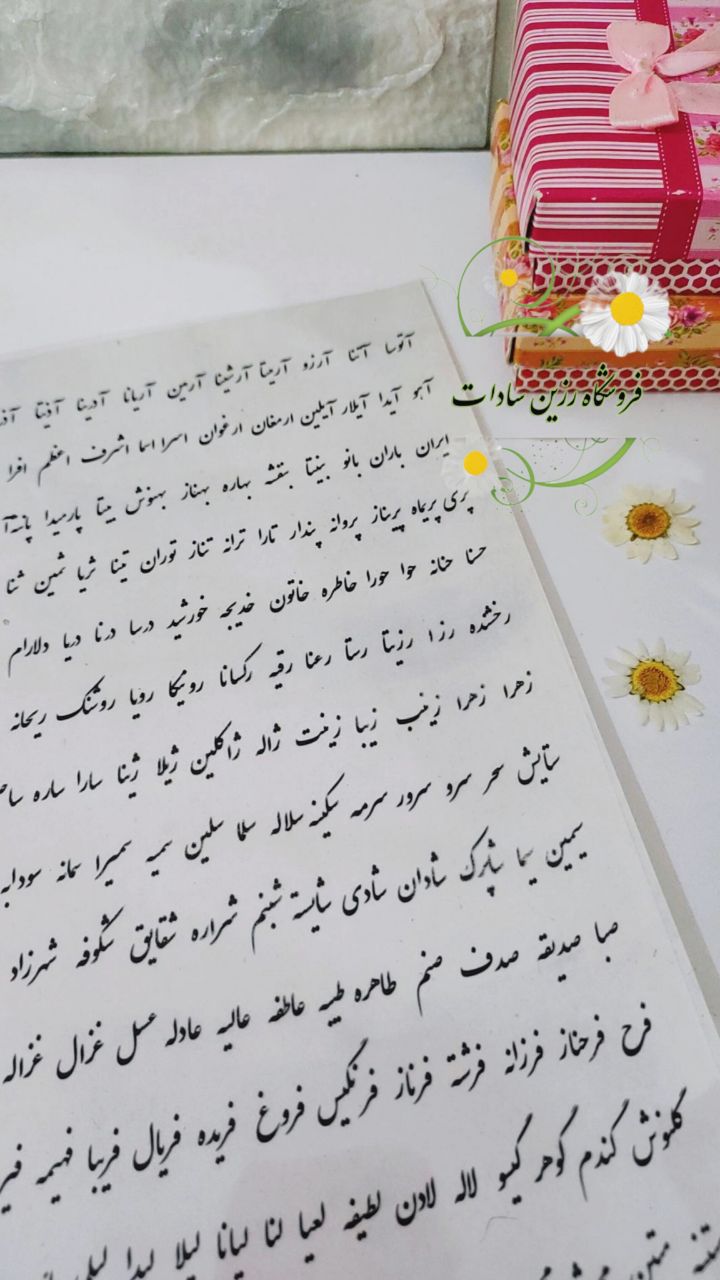 آتوسا آتنا آرزو آرمیتا آرشینا آرمین آریانا آدرینا آذیتا
آهو آیدا آیلار آیلین ارمغان ارغوان اسرا اسما اشرف اعظم افرا
ایران باران بانو بیتا بنفشه بهاره بهناز بهنوش بیتا پارمیدا پانته‌آ
پری پریماه پریناز پروانه پندار تارا ترانه تناز توران تینا ثریا ثمین ثنا
حسنا حنانه حوا حورا خاطره خاتون خدیجه خورشید درسا درنا دریا دلارام
رخشنده رزا رزیتا رستا رعنا رقیه رکسانا رونیکا رویا روشنک ریحانه
زهرا زهرا زینب زیبا زینت ژاله ژاکلین ژیلا ژینا سارا ساره
ستایش سحر سرو سرور سرمه سکینه سلاله سلما سلین سمیه سمیرا سمانه سودابه
سیمین سیما شاپرک شادان شادی شایسته شبنم شراره شقایق شکوفه شهرزاد
صبا صدیقه صدف صنم طاهره طیبه عاطفه عالیه عادله عسل غزال غزاله
فرح فرحناز فرزانه فرشته فرناز فرنگیس فروغ فریده فریال فریبا فهیمه
گلنوش گندم گوهر گیسو لاله لادن لطیفه لعیا لنا لیانا لیلا لیدا لیلی
فروشگاه رزین سادات